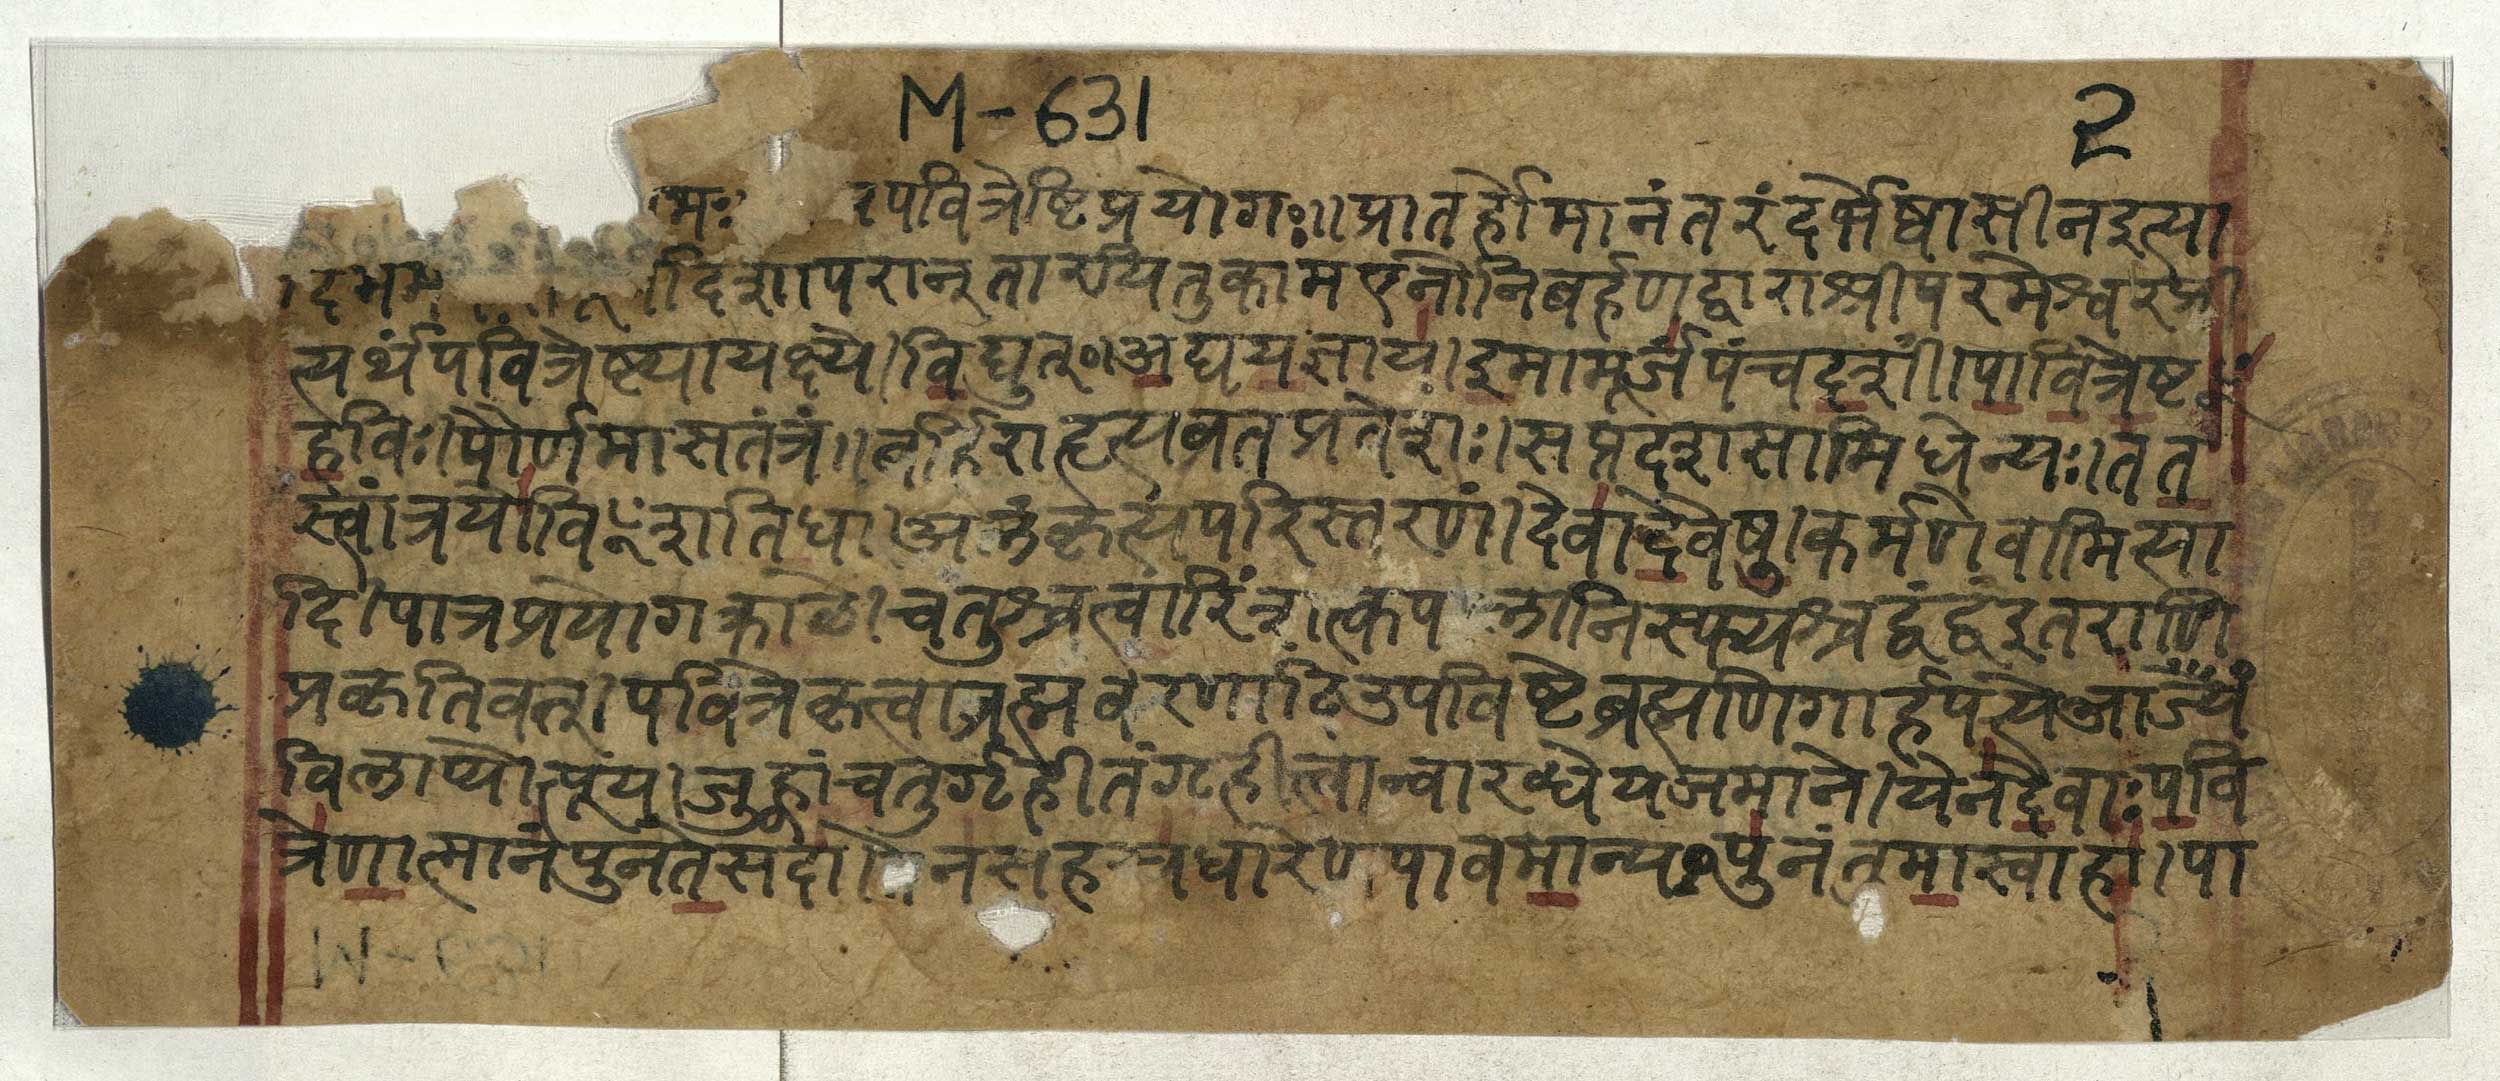 M-631
२
मः। पवित्रेष्टिप्रयोगः॥प्रातर्होमानंतरंदर्भेष्वासीनइत्या
दिशापरानुतारयितुकामएनोनिबर्हणद्वाराश्रीपरमेश्वरप्री
त्यर्थंपवित्रेष्ट्यायक्ष्ये।विद्युत्०।अद्ययज्ञाय।इमामूर्जंपंचदशीं।पावित्रेष्टꣳ
हविः।पौर्णमासतंत्रं॥बर्हिराहृत्यव्रतप्रवेशः।सप्तदशसामिधेन्यः।तत
स्त्वांत्रयोविꣳशतिधा।अन्तंकृत्यंपरिस्तरणं।देवादेवेषु।कर्मणेवामित्या
दि।पात्रप्रयोगकाळे।चतुश्चत्वारिंशत्कपालानिस्फ्यश्चद्वंद्वंइतराणि
प्रकृतिवत्।पवित्रेकृत्वाब्रह्मवरणादिउपविष्टेब्रह्मणिगार्हपत्येआज्यं
विलाप्योत्पूय।जुह्वांचतुर्गृहीतंगृहीत्वान्वारब्धेयजमाने।येनदेवाःपवि
त्रेणात्मानंपुनतेसदा।तेनसहस्रधारेणपावमान्यःपुनंतुमास्वाहा।पा